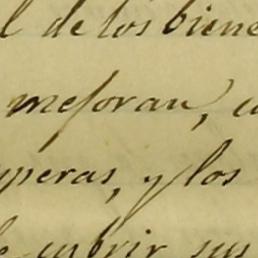 l de los biene
mejoran, c
peras, y los
cubrir sus